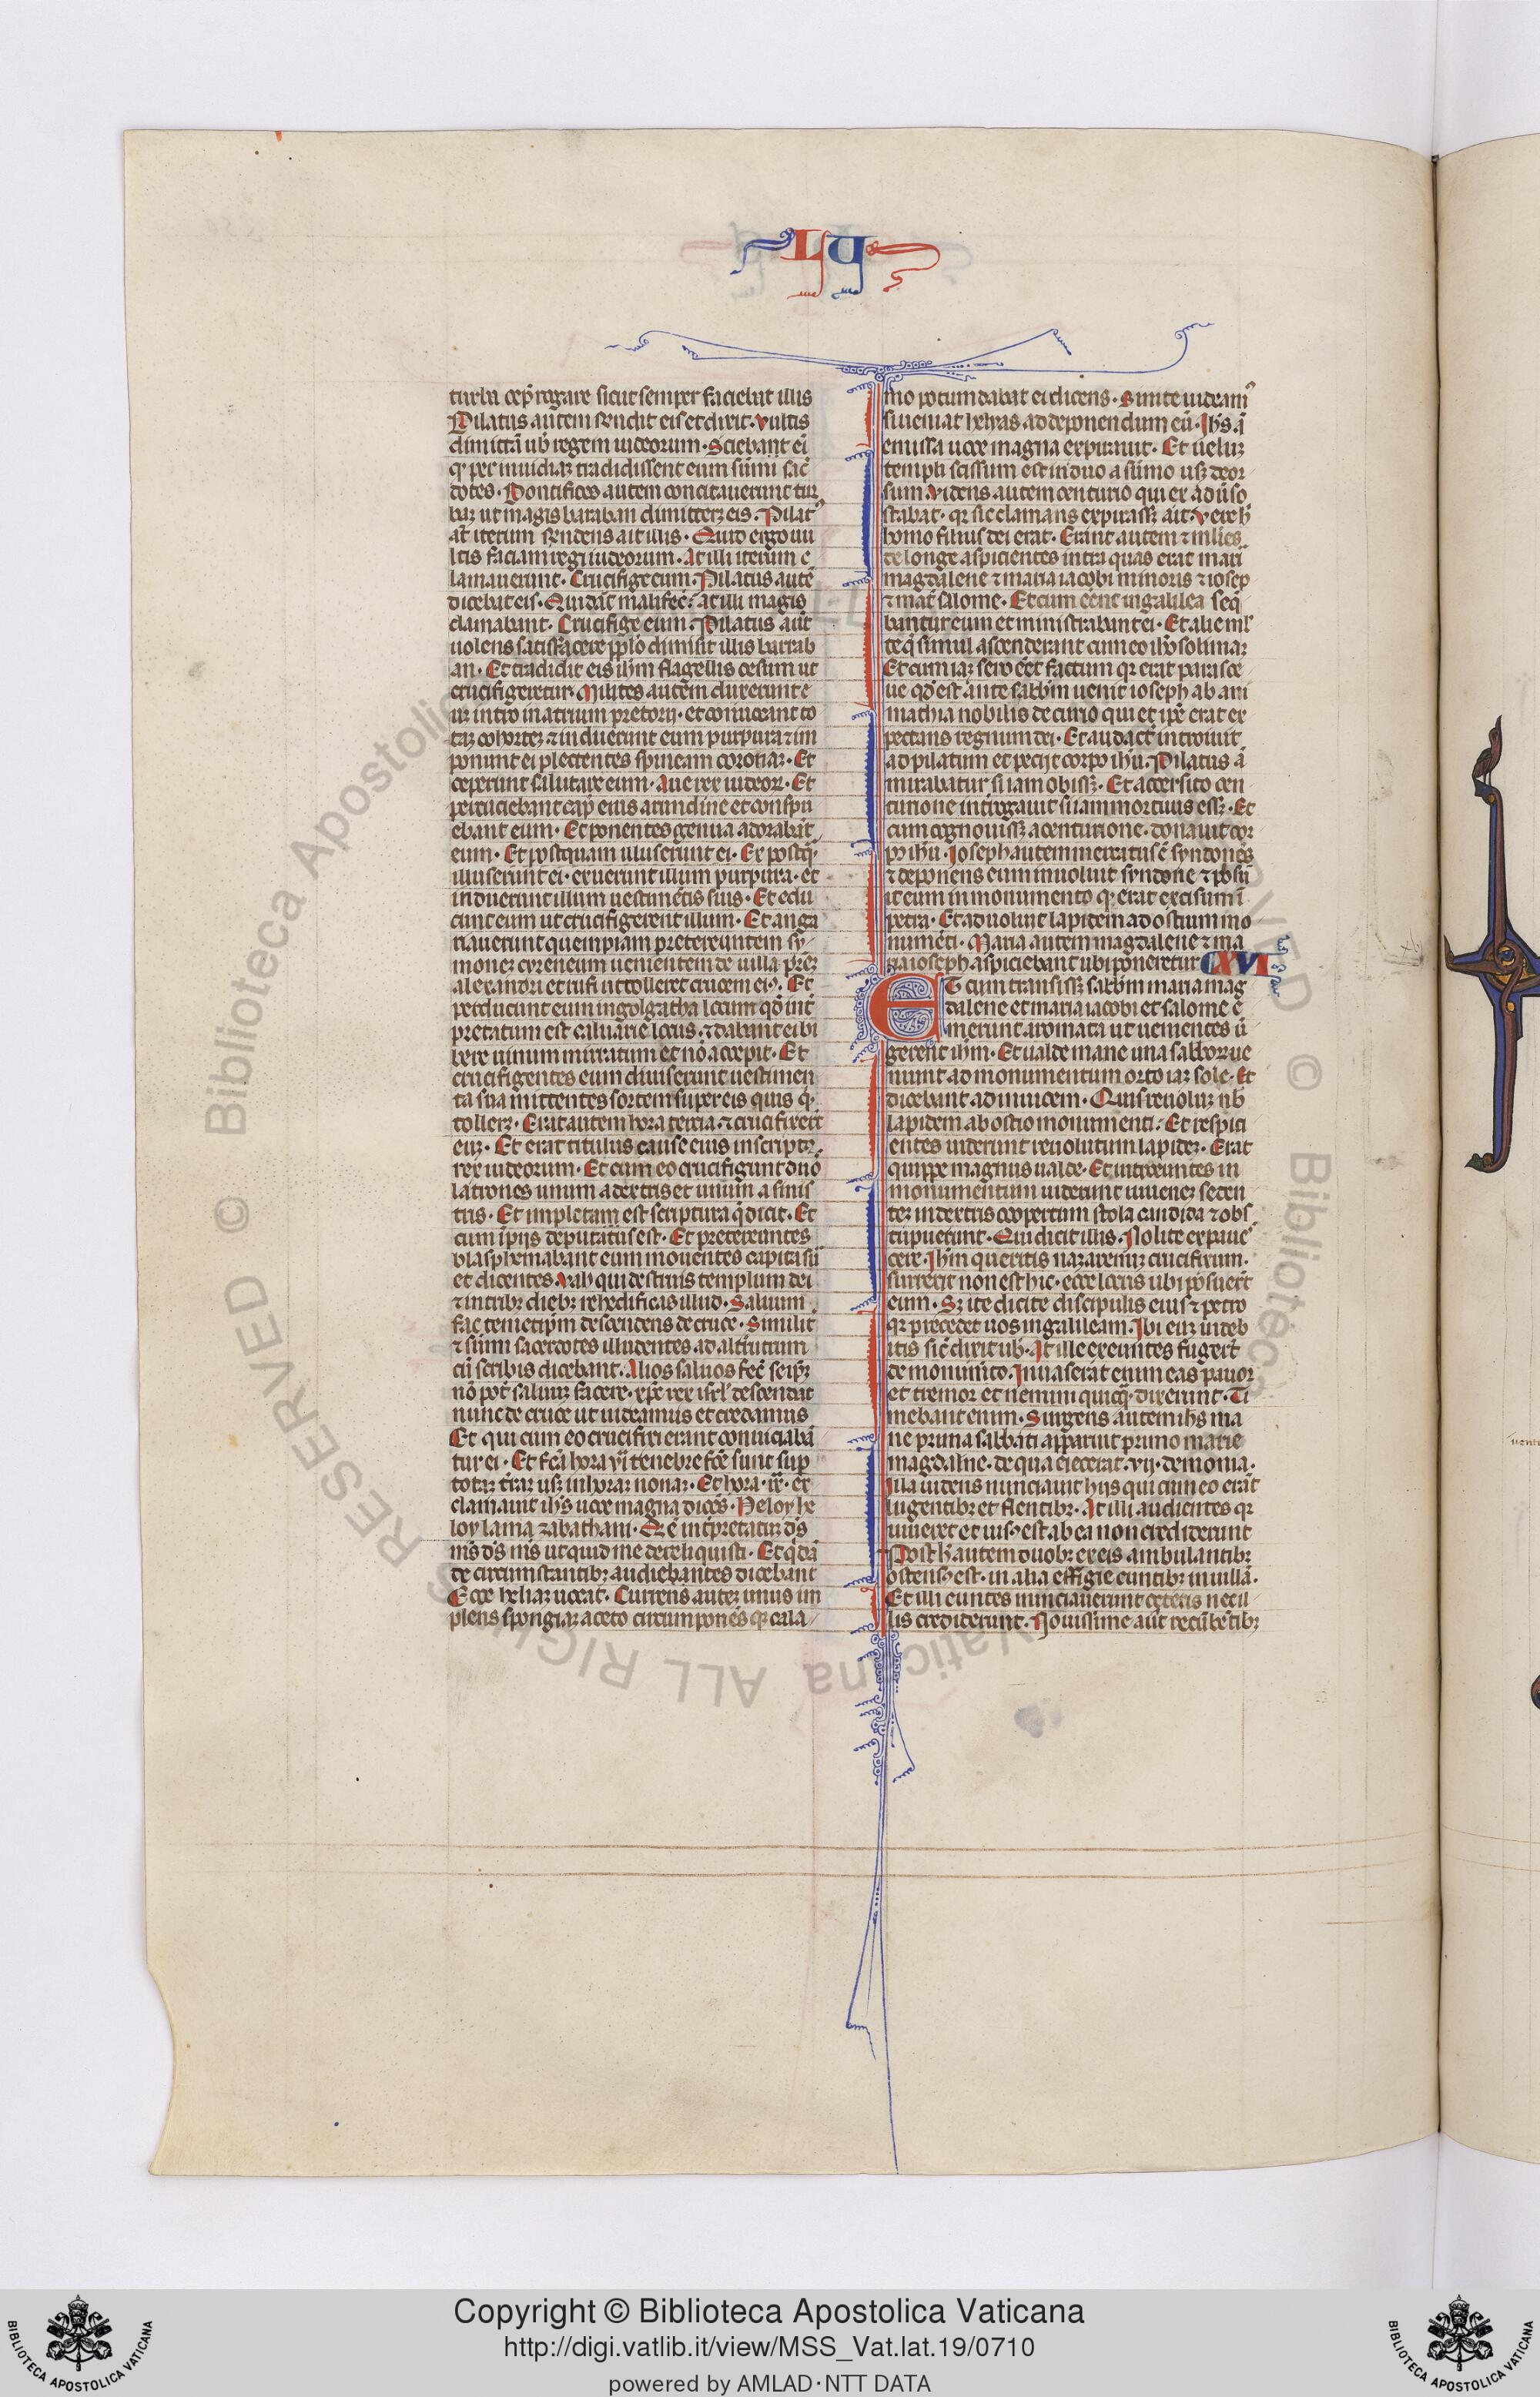 LU
turba cep̄ rogare sicut semper faciebat illis
Pilatus autem rn̄dit eis et dixit. vultis
dimittā ub̄ regem iudeorum. Sciebant ei
q̄ per inuidiaꝫ tradidissent eum sūmi sac̄
dotes. Pontifices autem concitauerunt tur
baꝫ ut magis baraban dimitteꝫ eis. Pilatꝰ
at̄ iterum rn̄dens ait illis. Quid ergo uu
ltis faciam regi iudeorum. At illi iterum c
lamauerunt. Crucifige eum. Pilatus autē
dicebat eis. Quid at̄ mali fec̄. at illi magis
clamabant. Crucifige eum. Pilatus aūt
uolens satisfacere pp̄lo dimisit illis barrab
an. Et tradidit eis ihm flagellis cesum ut
crucifigeretur. Milites autem duxerunt e
uꝫ intro in atrium pretorij. et conuocant to
taꝫ cohorteꝫ ⁊ induerunt eum purpura ⁊ im
ponunt ei plectentes spineam coronaꝫ. Et
ceperunt salutare eum. Aue rex iudeoꝝ. Et
percuciebant cap̄ eius arundine et conspu
ebant eum. Et ponentes genua adorabāt
eum. Et postquam illuserunt ei. Et postq̄
illuserunt ei. exuerunt illum purpura. et
induerunt illum uestimētis suis. Et edu
cunt eum ut crucifigerent illum. Et anga
riauerunt quempiam pretereuntem sy
moneꝫ cyreneum uenientem de uilla prēꝫ
alexandri et rufi ut tolleret crucem eiꝰ. Et
perducunt eum in golgatha locum qd̄ int̄
pretatum est caluarie locus. ⁊ dabant ei bi
bere uinum mirratum et nō accepit. Et
crucifigentes eum diuiserunt uestimen
ta sua mittentes sortem super eis quis q̄
tolleꝫ. Erat autem hora tercia. ⁊ crucifixert̄
euꝫ. Et erat titulus cause eius inscriptꝰ
rex iudeorum. Et cum eo crucifigunt duo
latrones unum a dextris et unum a sinis
tris. Et impleta est scriptura q̄ dicit. Et
cum īpijs deputatus est. Et pretereuntes
blasphemabant eum mouentes capita sū
et dicentes. vah qui destruis templum dei
⁊ in tribꝫ diebꝫ rehedificas illud. Saluum
fac temetip̄m descendens de cruce. Similit̄
⁊ sūmi sacerdotes illudentes ad altūtrum
cū scribis dicebant. Alios saluos fec̄ seip̄ꝫ
nō pōt saluuꝫ facere. xp̄c rex isrl̄ descendat
nunc de cruce ut uideamus et credamus
Et qui cum eo crucifixi erant conuiciabā
tur ei. Et fc̄a hora vj tenebre fc̄e sunt sup̄
totaꝫ trāꝫ usꝫ in horaꝫ nonaꝫ. Et hora .ix. ex
clamauit ihs̄ uoce magna dicēs. Heloy he
loy lama zabathani. Qd̄ ē int̄pretatuꝫ ds̄
ms̄ ds̄ ms̄ ut quid me dereliquisti. Et q̄dā
de circumstantibꝫ audientes dicebant
Ecce heliaꝫ uocat. Currens auteꝫ unus im
plens spongiaꝫ aceto circumponēs q̄ cala
mo potum dabat ei dicens. Sinite uideamꝰ
si ueniat helyas ad deponendum eū. Ihs̄ ā
emissa uoce magna expirauit. Et ueluꝫ
templi scissum est in duo a sūmo usꝫ deor
sum. Videns autem centurio qui ex aduso
stabat. qꝫ sic clamans expirassꝫ ait. Vere h̄
homo filius dei erat. Erant autem ⁊ mlies
de longe aspicientes intra quas erat mari
magdalene ⁊ maria iacobi minoris ⁊ iosep
⁊ mat̄ salome. Et cum eēnt in galilea seq̄
bantur eum et ministrabant ei. Et alie ml̄
te q̄ simul ascenderant cum eo ihrosolimaꝫ
Et cum iaꝫ sero eēt factum qꝫ erat parasce
ue qd̄ est ante sabbm̄ uenit ioseph ab ari
mathia nobilis decurio qui et ip̄e erat ex
pectans regnum dei. Et audact̄ introiuit
ad pilatum et pecijt corpꝰ ihū. Pilatus ā
mirabatur si iam obissꝫ. Et accersito cen
turione int̄rogauit si iam mortuus essꝫ. Et
cum cognouissꝫ a centurione. donauit cor
pꝰ ihū. Ioseph autem mercatus ē syndonēs
⁊ deponens eum inuoluit syndone ⁊ posu
it eum in monumento q̄ erat excisum ī
petra. Et aduoluit lapidem ad ostium mo
numēti. Maria autem magdalene ⁊ ma
ria ioseph aspiciebant ubi poneretur CXVI
ET cum transissꝫ sabbm̄ maria mag
dalene et maria iacobi et salome e
merunt aromata ut uenientes ū
gerent ihm̄. Et ualde mane una sabboꝝ ue
niunt ad monumentum orto iaꝫ sole. Et
dicebant ad inuicem. Quis reuoluꝫ nb̄
lapidem ab ostio monumenti. Et respici
entes uiderunt reuolutum lapideꝫ. Erat
quippe magnus ualde. Et introeuntes in
monumentum uiderunt iuueneꝫ seden
teꝫ in dextris coopertum stola candida ⁊ obs
tupuerunt. Qui dicit illis. Nolite expaues
cere. Ihm̄ queritis nazarenuꝫ crucifixum.
surrexit non est hic. ecce locus ubi posuert̄
eum. Sꝫ ite dicite discipulis eius ⁊ petro
qꝫ precedet uos in galileam. Ibi euꝫ uideb
itis sic̄ dixit ub̄. At ille exeuntes fugert̄
de monum̄to. Inuaserat enim eas pauor
et tremor et nemini quicq̄ dixerunt. Ti
mebant enim. Surgens autem ihs ma
ne prima sabbati apparuit primo marie
magdalne. de qua eiecerat .vij. demonia.
Illa uidens nunciauit hijs qui cum eo erāt
lugentibꝫ et flentibꝫ. At illi audientes qꝫ
uiueret et uisꝰ est ab ea non crediderunt
Post h̄ autem duobꝫ ex eis ambulantibꝫ
ostensꝰ est. in alia effigie euntibꝫ in uillā.
Et illi euntes nunciauerunt ceteris nec il
lis crediderunt. Nouissime aūt recūbētibꝫ
© Biblioteca Apostolica Vaticana ALL RIGHTS RESERVED
Copyright © Biblioteca Apostolica Vaticana
http://digi.vatlib.it/view/MSS_Vat.lat.19/0710
powered by AMLAD·NTT DATA
BIBLIOTECA APOSTOLICA VATICANA
BIBLIOTECA APOSTOLICA VATICANA